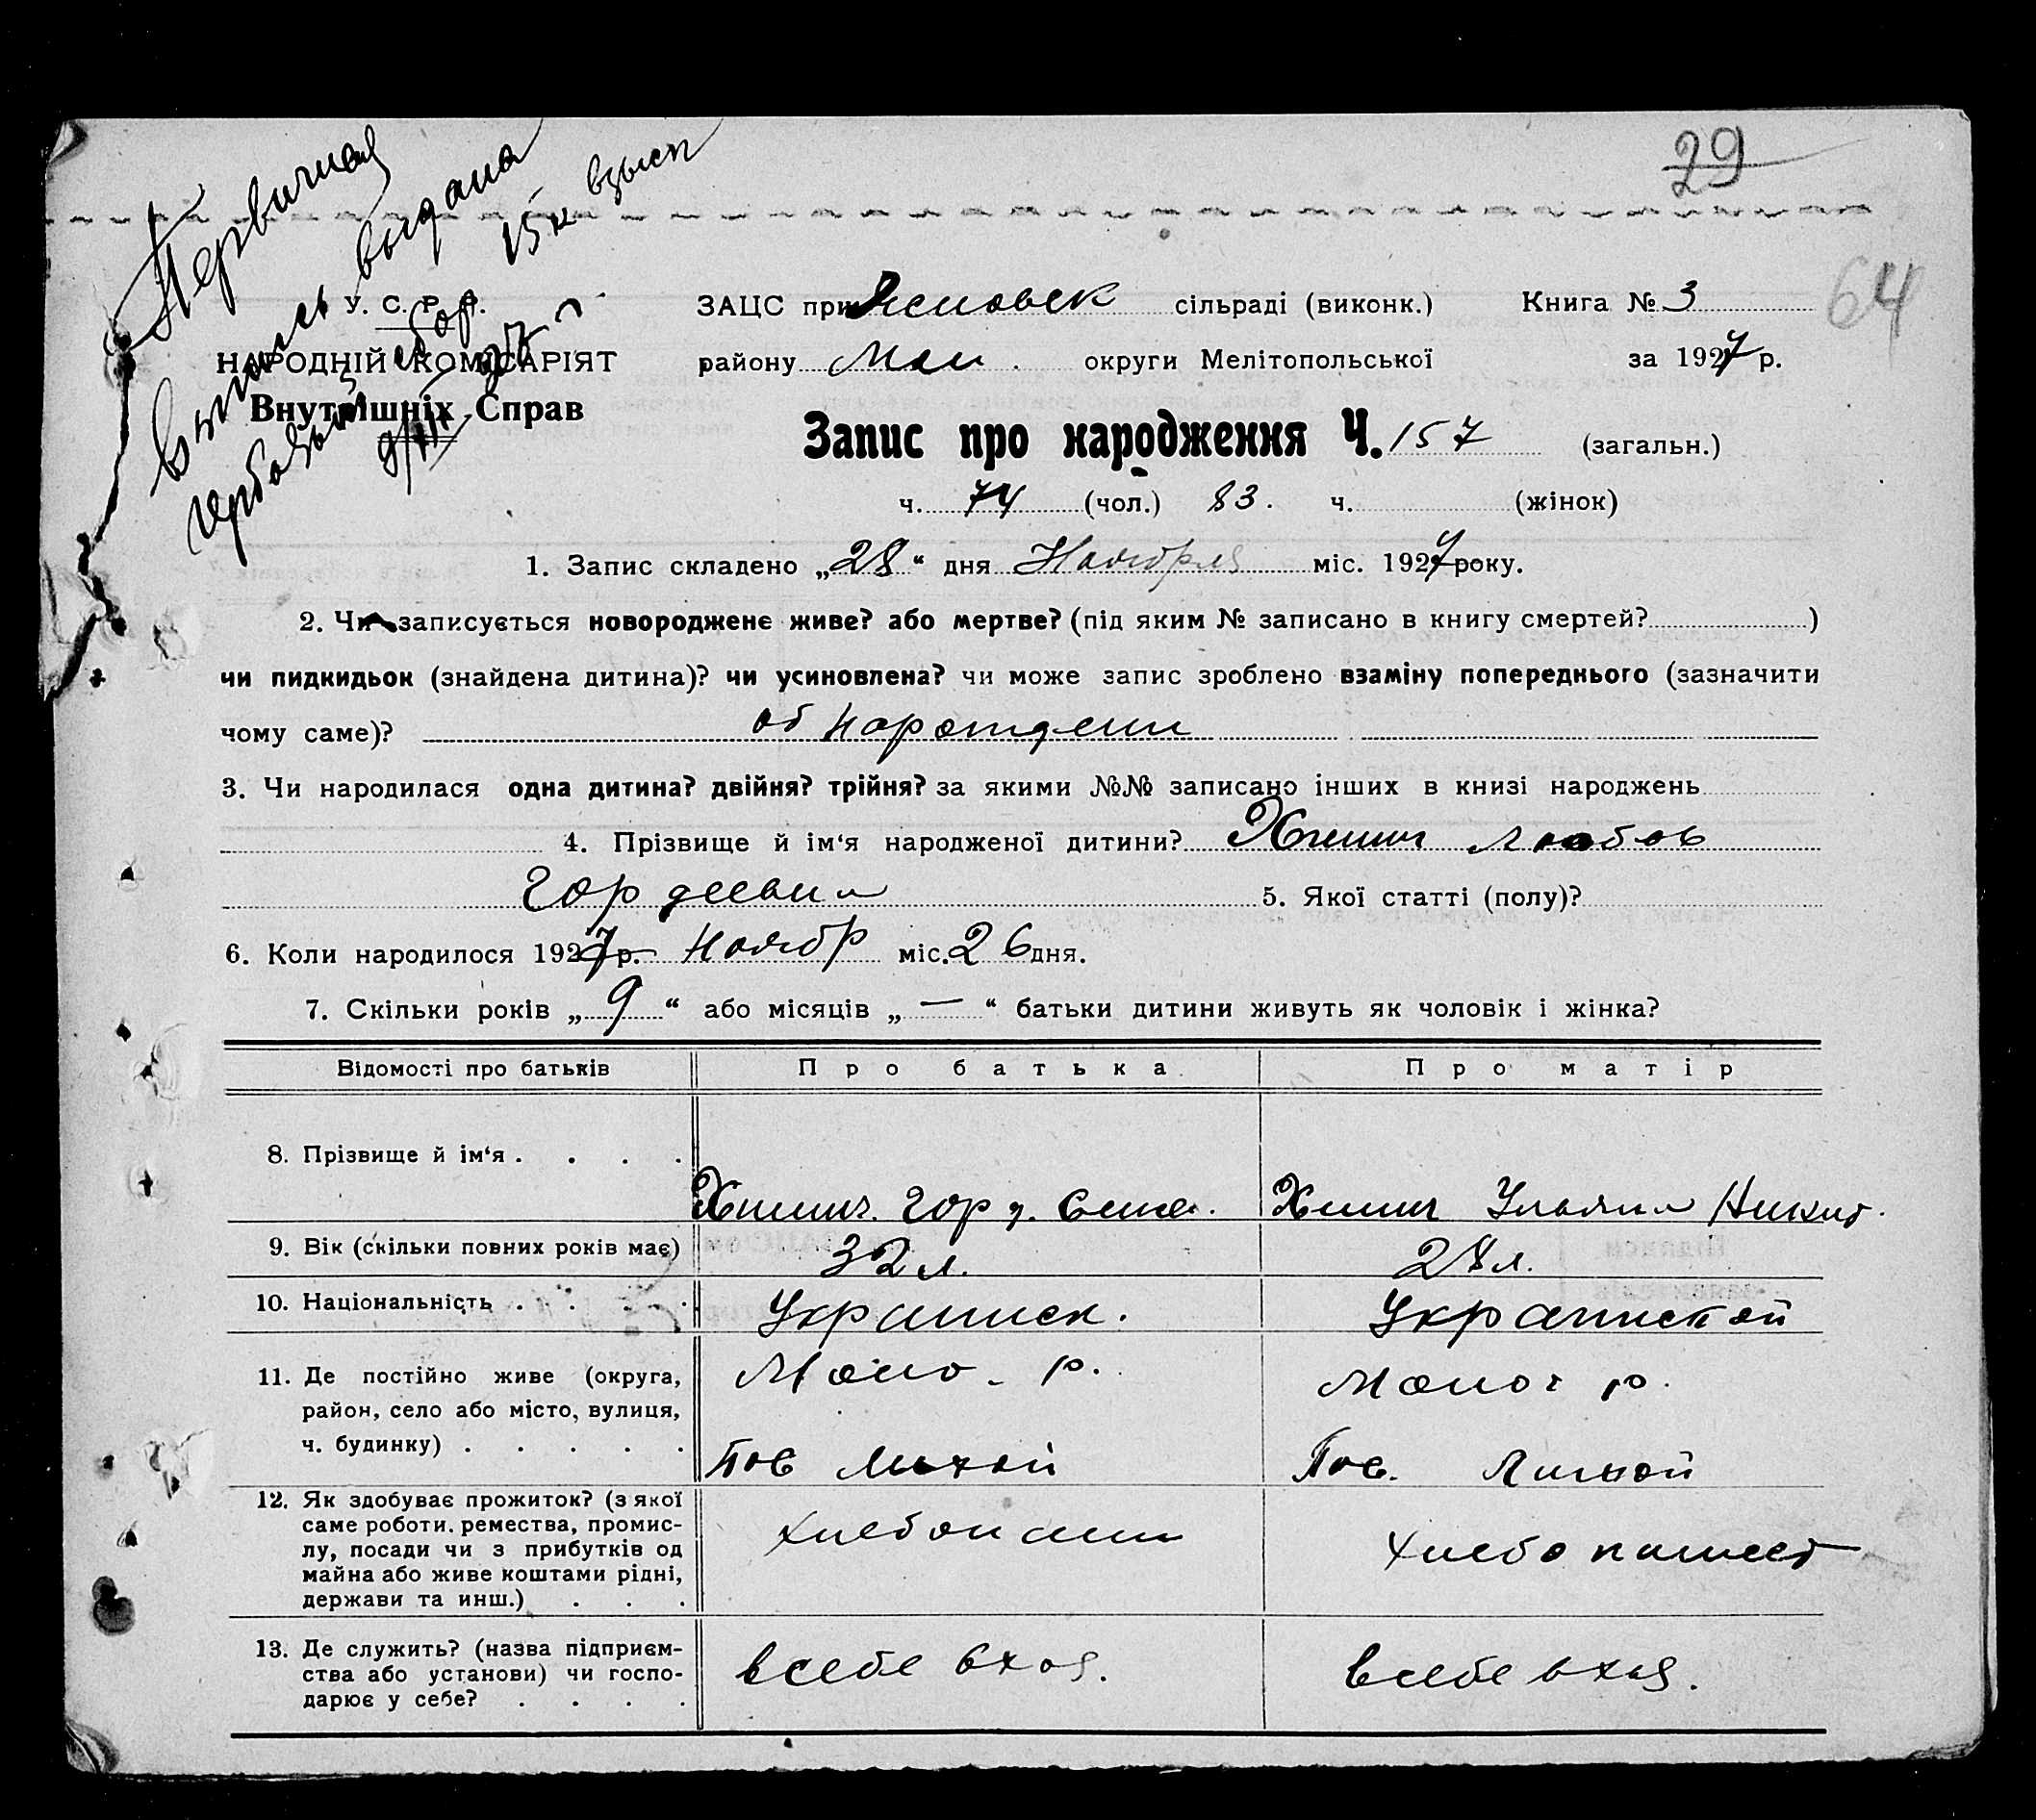 29
64
Первичная
выпись выдана
гербовый сбор
15 к взыск
У. С. Р. Р.
НАРОДНІЙ КОМІСАРІЯТ
Внутрішніх Справ
ЗАЦС при сільраді (виконк.) Книга № 3
району округи Мелітопольської за 1927 р.
Запис про народження Ч. 157 (загальн.)
ч. 74 (чол.) 83. ч. (жінок)
1. Запис складено „28“ дня Ноября міс. 1927 року.
2. Чи записується новороджене живе? або мертве? (під яким № записано в книгу смертей? )
чи пидкидьок (знайдена дитина)? чи усиновлена? чи може запис зроблено взаміну попереднього (зазначити
чому саме)? об нарождени
3. Чи народилася одна дитина? двійня? трійня? за якими №№ записано інших в книзі народжень
4. Прізвище й ім‘я народженої дитини? Любов
Гордеевна 5. Якої статті (полу)?
6. Коли народилося 1927 р. Ноябр міс. 26 дня.
7. Скільки років „9“ або місяців „—“ батьки дитини живуть як чоловік і жінка?
Відомості про батьків Про батька Про матір
8. Прізвище й ім‘я . . . . Горд. Ульяна Никит.
9. Вік (скільки повних років має) 32 л. 28 л.
10. Національність . . . . Украинск. Украинской
11. Де постійно живе (округа, р. р.
район, село або місто, вулиця,
ч. будинку) . . . . . Пос Пос.
12. Як здобуває прожиток? (з якої
саме роботи. ремества, промис-
лу, посади чи з прибутків од хлебопаш хлебопашест
майна або живе коштами рідні,
держави та инш.) . . .
13. Де служить? (назва підприєм-
ства або установи) чи госпо- в себе в хоз. в себе в хоз.
дарює у себе? . . . .